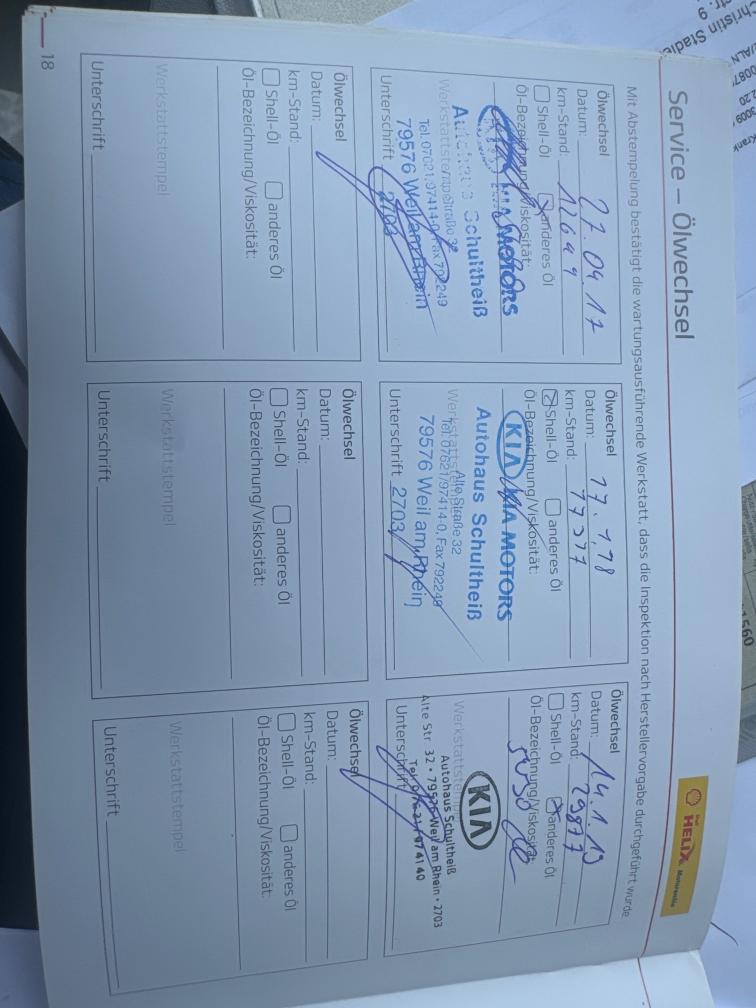 Service – Ölwechsel
Shell
HELIX
Motorenöle
Mit Abstempelung bestätigt die wartungsausführende Werkstatt, dass die Inspektion nach Herstellervorgabe durchgeführt wurde
Ölwechsel
Datum: 27.04.17
km-Stand: 12649
Shell-Öl anderes Öl
Öl-Bezeichnung/Viskosität:
KIA MOTORS
Autohaus Schultheiß
Werkstattstempel
Alte Straße 32
Tel. 07621/97414-0, Fax 792249
79576 Weil am Rhein
Unterschrift 2703
Ölwechsel
Datum: 17.1.18
km-Stand: 17377
Shell-Öl anderes Öl
Öl-Bezeichnung/Viskosität:
KIA KIA MOTORS
Autohaus Schultheiß
Werkstattstempel
Alte Straße 32
Tel. 07621/97414-0, Fax 792249
79576 Weil am Rhein
Unterschrift 2703
Ölwechsel
Datum: 14.1.19
km-Stand: 29877
Shell-Öl anderes Öl
Öl-Bezeichnung/Viskosität:
5W30
KIA
Werkstattstempel
Autohaus Schultheiß
Alte Str. 32 • 79576 Weil am Rhein • 2703
Tel. 07621/974140
Unterschrift
Ölwechsel
Datum:
km-Stand:
Shell-Öl anderes Öl
Öl-Bezeichnung/Viskosität:
Werkstattstempel
Unterschrift
Ölwechsel
Datum:
km-Stand:
Shell-Öl anderes Öl
Öl-Bezeichnung/Viskosität:
Werkstattstempel
Unterschrift
Ölwechsel
Datum:
km-Stand:
Shell-Öl anderes Öl
Öl-Bezeichnung/Viskosität:
Werkstattstempel
Unterschrift
18
1560